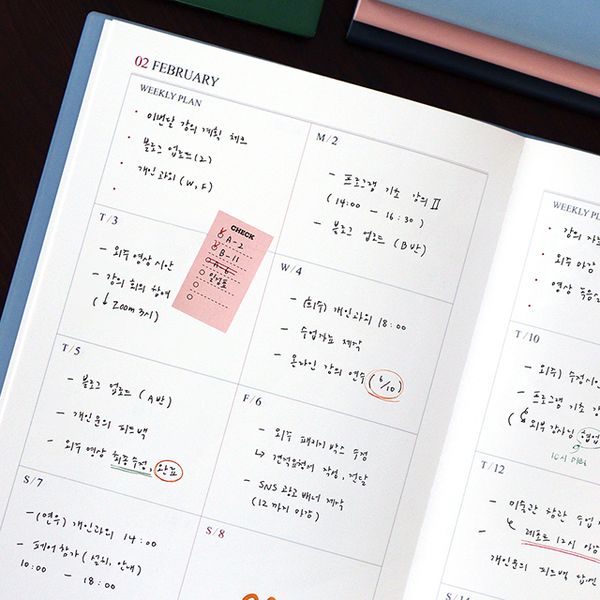 02 FEBRUARY
WEEKLY PLAN
이번달 강의 계획 체크
블로그 업로드(2)
개인과외 (W, F)
M/2
- 프로그램 기초 강의 II
(14:00 - 16:30)
- 블로그 업로드 (B반)
T/3
- 외주 영상 시안
- 강의 회의 참여
(↓ Zoom 3시)
CHECK
A-2
B-11
A-6
일정표
W/4
- (외주) 개인과외 18:00
- 수업자료 제작
- 온라인 강의 연수 (6/10)
T/5
- 블로그 업로드 (A반)
- 개인문의 피드백
- 외주 영상 최종수정, 완료
F/6
- 외주 패키지 박스 수정
↳ 견적요청서 작성, 전달
- SNS 광고 배너 제작
(12까지 마감)
S/7
-(연우) 개인과외 14:00
- 페어참가 (설치, 안내)
10:00 - 18:00
S/8
WEEKLY PL
강의 자
외주 마감
영상
T/10
- 외주) 수정시
- 프로그램 기초 강
외부강사님 협업
10시 미팅
T/12
- 미술관 참관 수업
레포트 12시 마감
개인문의 피드백 답변
S/14